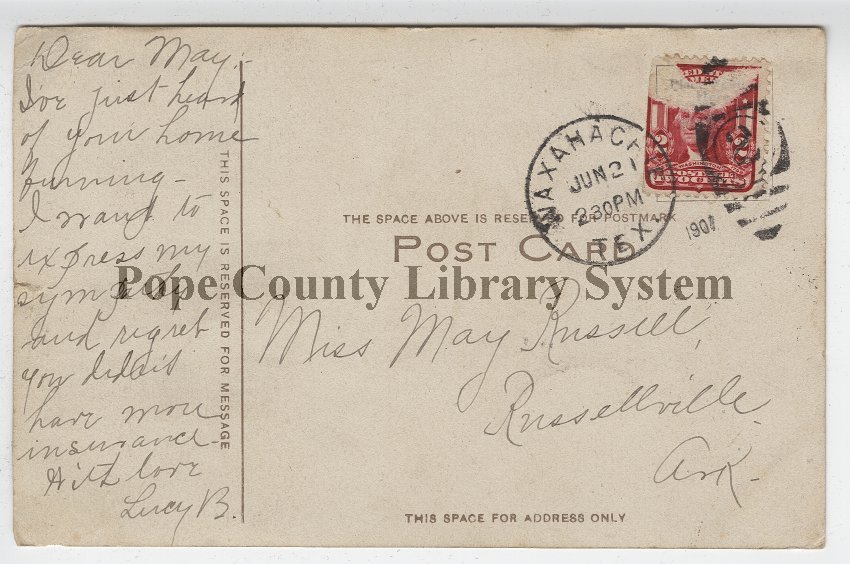 Dear May:
I've just heard
of your home
burning-
I want to
express my
sympathy
and regret
you didn't
have more
insurance-
With love
Lucy B.
THIS SPACE IS RESERVED FOR MESSAGE
WAXAHACHIE
JUN 21
2 30 PM
TEX
1907
THE SPACE ABOVE IS RESERVED FOR POSTMARK
POST CARD
Pope County Library System
Miss May Russell,
Russellville
Ark-
THIS SPACE FOR ADDRESS ONLY